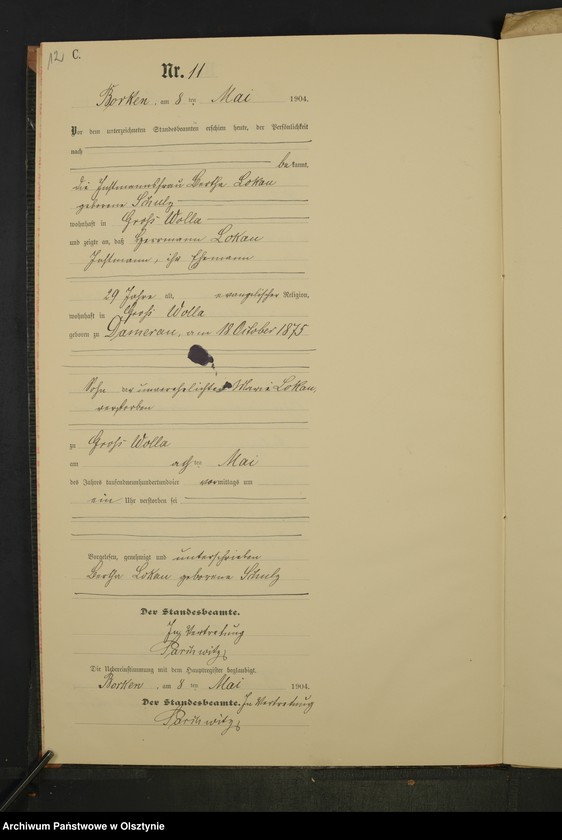 12
C.
Nr. 11
Borken, am 8 ten Mai 1904.
Vor dem unterzeichneten Standesbeamten erschien heute, der Persönlichkeit
nach
bekannt,
die Instmannsfrau Bertha Lokau
geborene Schulz
wohnhaft in Groß Wolla
und zeigte an, daß Herrmann Lokau
Instmann, ihr Ehemann
29 Jahre alt, evangelischer Religion,
wohnhaft in Groß Wolla
geboren zu Damerau, am 18. October 1875
Sohn der unverehelichten Marie Lokau,
verstorben
zu Groß Wolla
am ten Mai
des Jahres tausendneunhundertundvier vormittags um
ein Uhr verstorben sei
Vorgelesen, genehmigt und unterschrieben
Bertha Lokau geborene Schulz
Der Standesbeamte.
In Vertretung
Die Uebereinstimmung mit dem Hauptregister beglaubigt.
Borken, am 8 ten Mai 1904.
Der Standesbeamte. In Vertretung
Archiwum Państwowe w Olsztynie